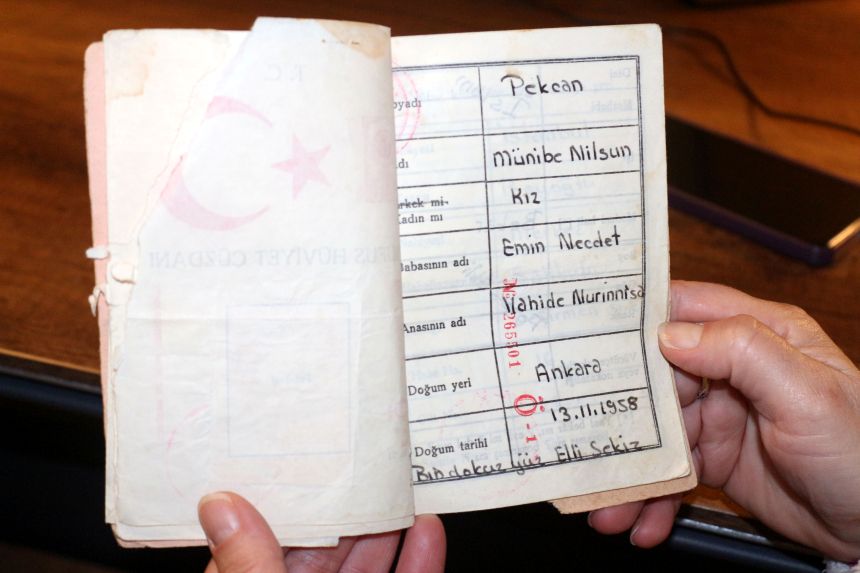 T. C.
NÜFUS HÜVİYET CÜZDANI
oyadı Pekcan
dı Münibe Nilsun
rkek mi- Kız
Kadın mı
Babasının adı Emin Necdet
Anasının adı Vahide Nurinnisa
Doğum yeri Ankara
Doğum tarihi 13.11.1958
Bin dokuz yüz Elli Sekiz
No 265501
Ö - 1